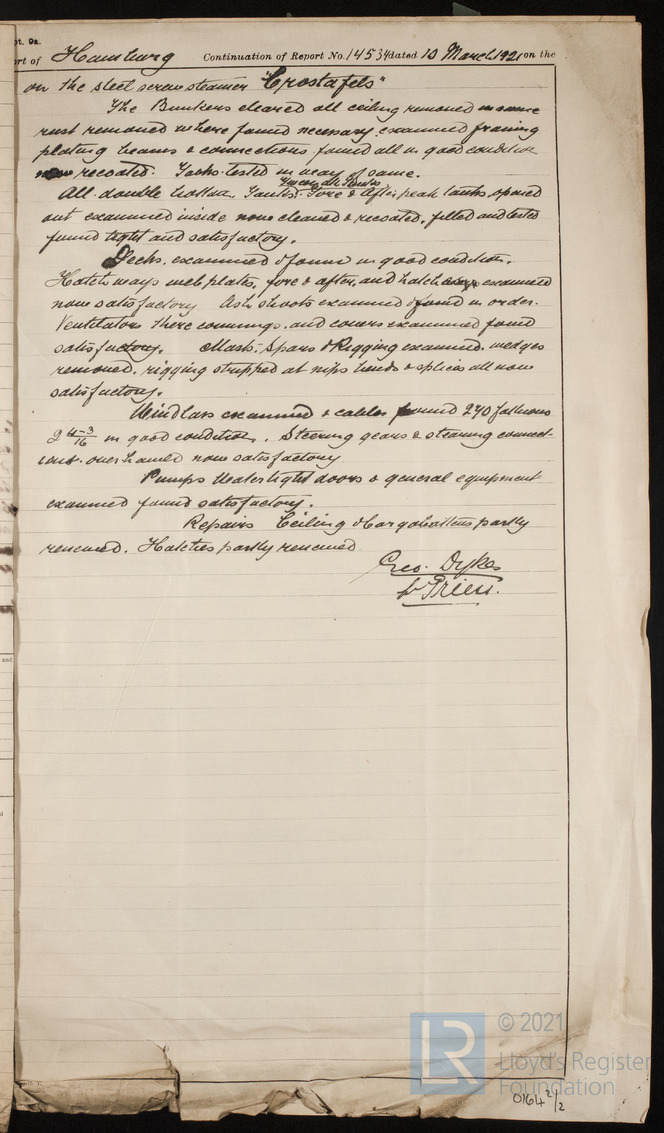 pt. 9a.
rt of Hamburg Continuation of Report No. 14534 dated 13 March 1921 on the
on the steel screw steamer "Crostafels"
The Bunkers cleared all ceiling removed
rust removed where found necessary examined framing
plating beams & connections found all in good condition
recoated. Tanks tested in way of same.
All double bottom Tanks. Fore & After peak tanks opened
out examined inside now cleaned & recoated, filled and tested
found tight and satisfactory.
Decks examined & found in good condition.
Hatchways web plates, fore & after, and hatch examined
now satisfactory Ash shoots examined & found in order.
Ventilators there coamings and covers examined found
satisfactory. Masts, Spars & Rigging examined wedges
removed, rigging stripped at nips bends & splices all now
satisfactory.
Windlass examined & cables found 270 fathoms
2 4-3/16 in good condition. Steering gears & steering connect-
ions overhauled now satisfactory
Pumps Watertight doors & general equipment
examined found satisfactory.
Repairs Ceiling & Cargobattens partly
renewed. Hatches partly renewed
Geo. Dykes
and
© 2021
LR
Lloyd's Register
Foundation
0164 2/2